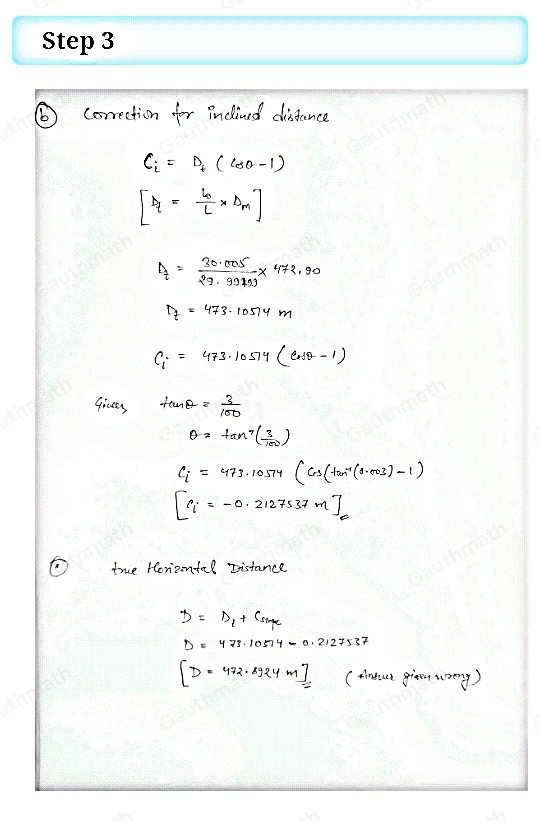 Step 3
(b) Correction for inclined distance
Ci = Dt (cosθ - 1)
[Dt = lo/L × Dm]
Dt = 30.005/ × 472.90
Dt = 473.10514 m
Ci = 473.10514 (cosθ - 1)
Given, tanθ = 3/100
θ = tan⁻¹(3/100)
Ci = 473.10514 (Cos(tan⁻¹(0.003) - 1)
[Ci = -0.2127537 m]
true Horizontal Distance
D = Dt + Cslope
D = 473.10514 - 0.2127537
[D = 472.8924 m] (Answer given wrong)